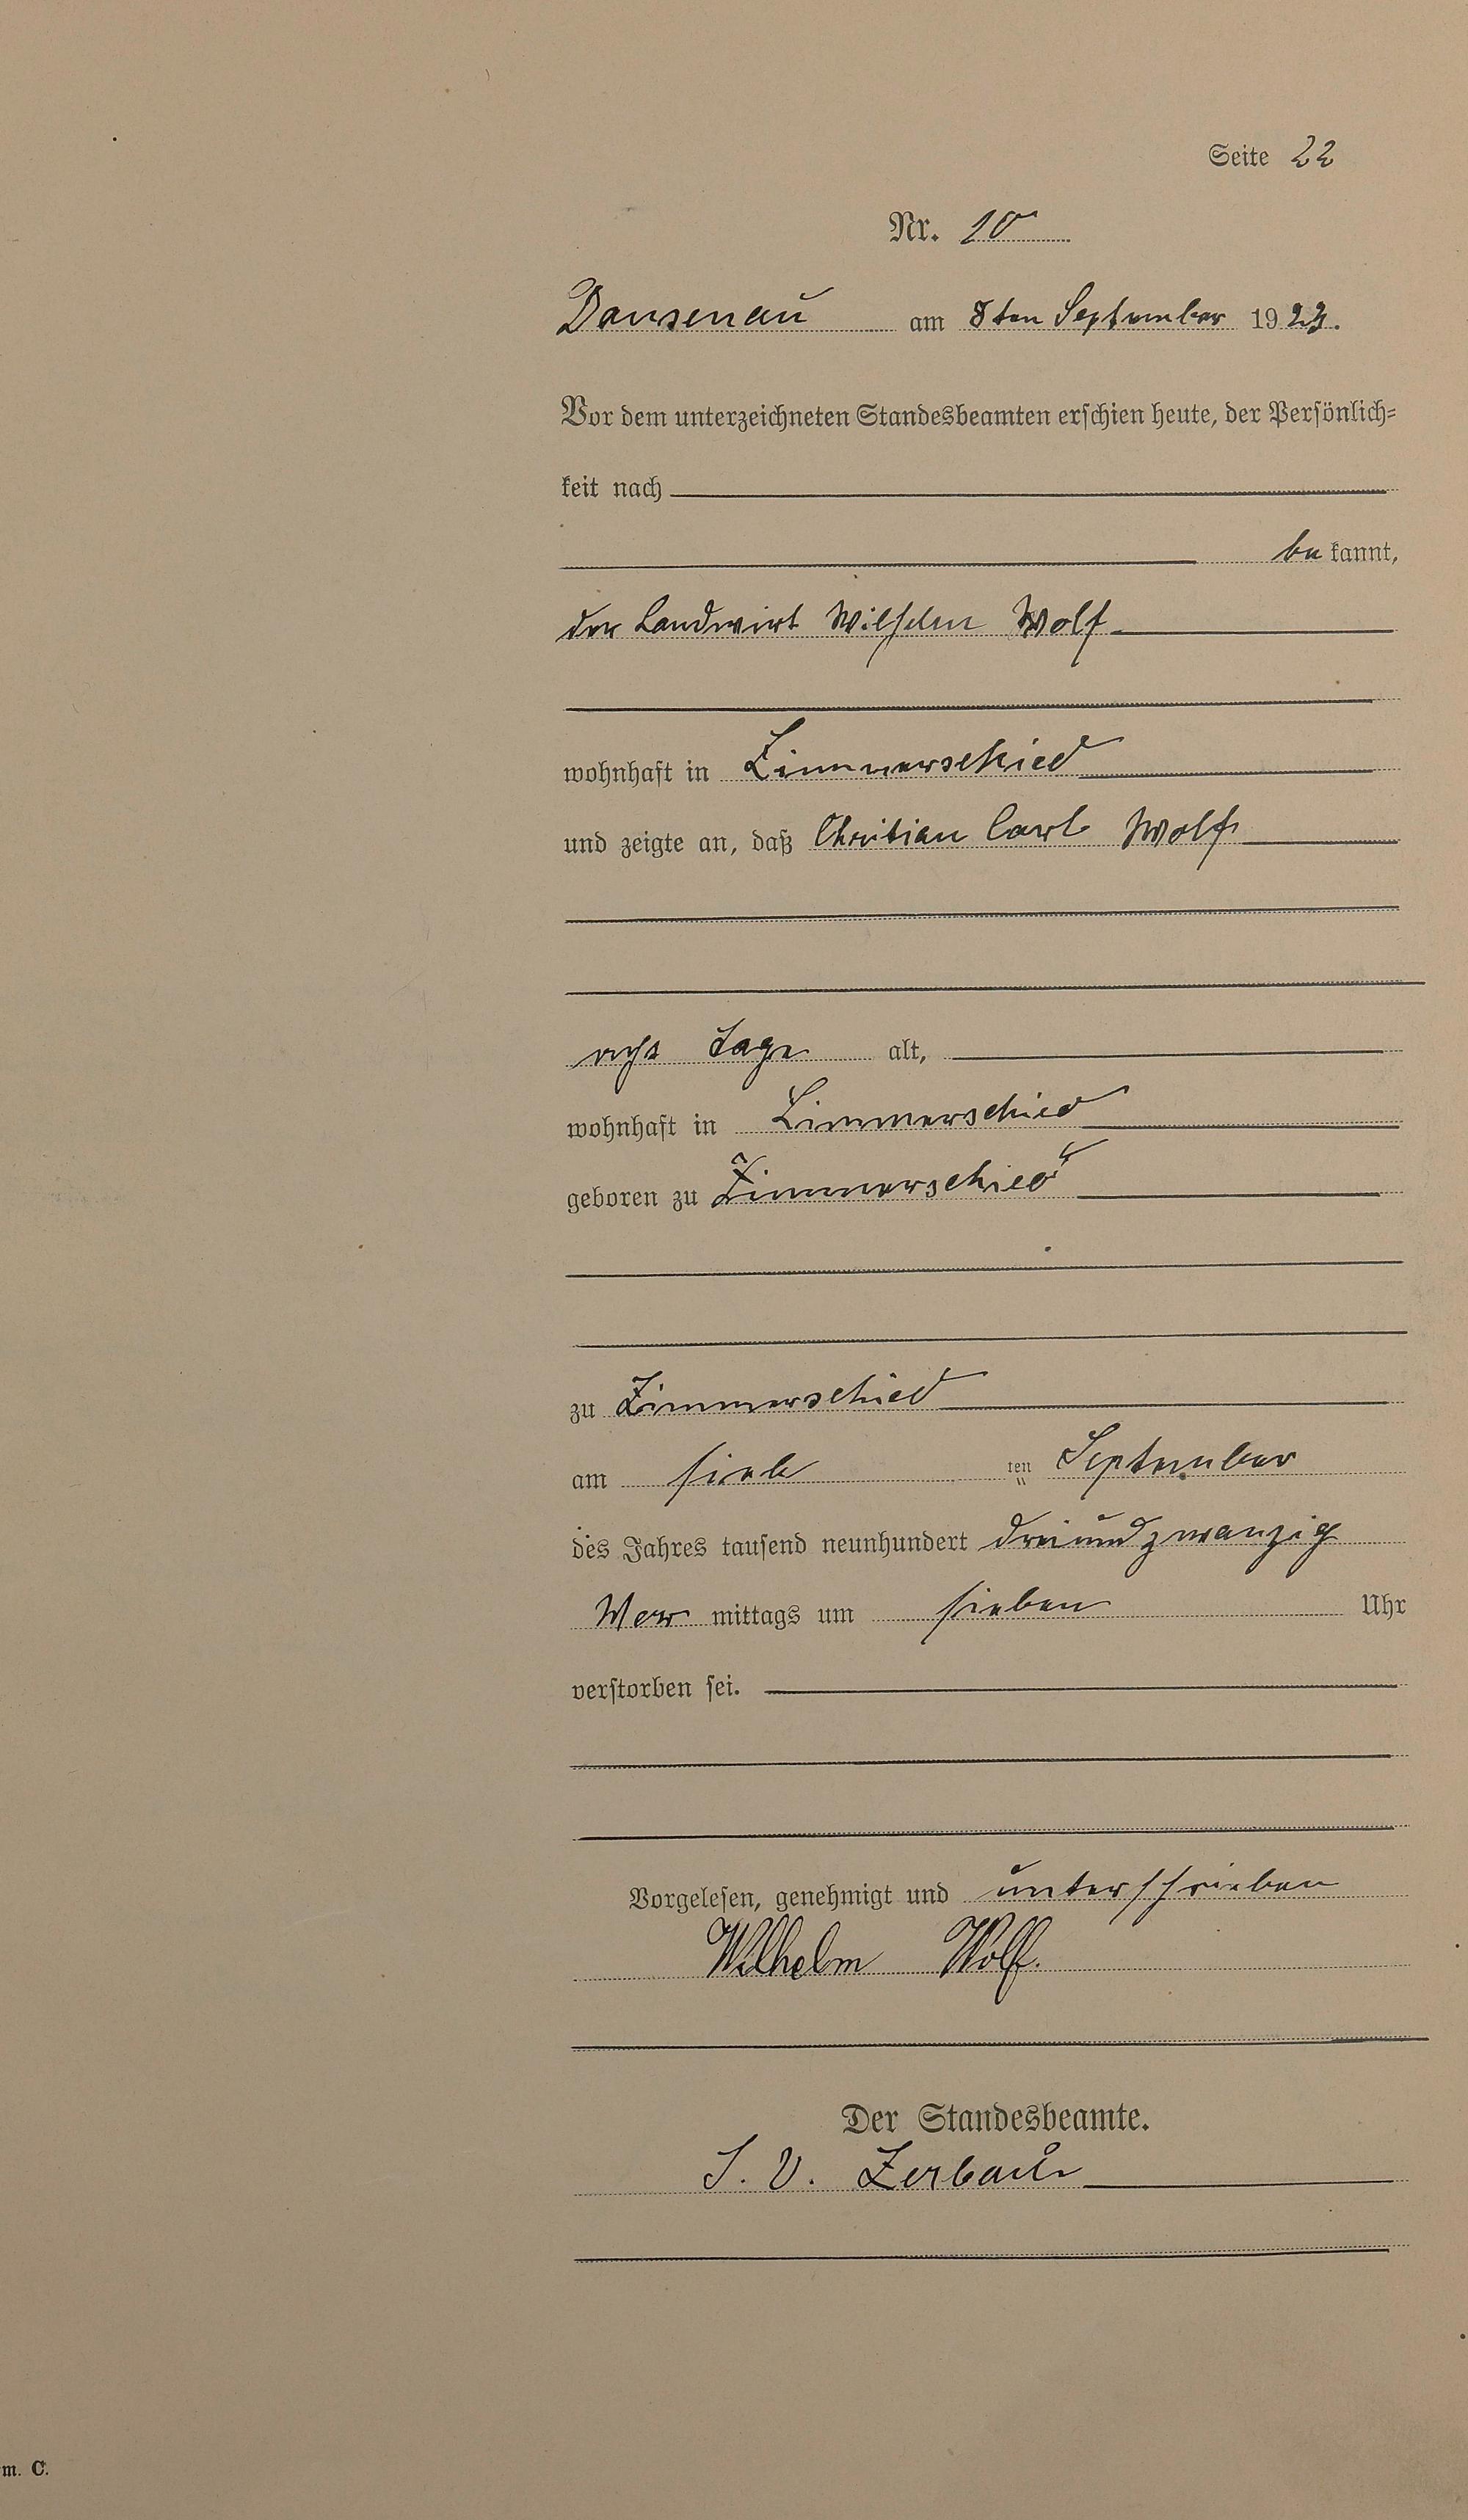 Seite 22
Nr. 10
Dausenau am 8ten September 1923.
Vor dem unterzeichneten Standesbeamten erschien heute, der Persönlich=
keit nach
be kannt,
der Landwirt Wilhelm Wolf
wohnhaft in Zimmerschied
und zeigte an, daß Christian Carl Wolf
Tage alt,
wohnhaft in Zimmerschied
geboren zu Zimmerschied
zu Zimmerschied
am sieb ten September
des Jahres tausend neunhundert dreiundzwanzig
Vor mittags um sieben Uhr
verstorben sei.
Vorgelesen, genehmigt und unterschrieben
Wilhelm Wolf.
Der Standesbeamte.
J. V. Zerbach
m. C.